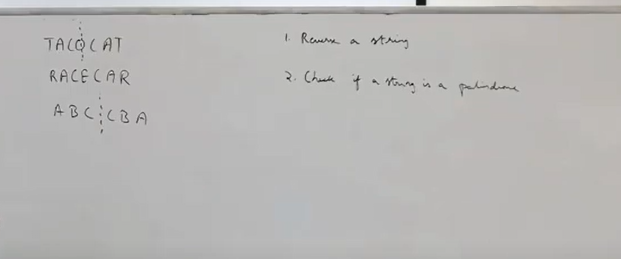 TACOCAT
RACECAR
ABCCBA
1. Reverse a string
2. Check if a string is a palindrome